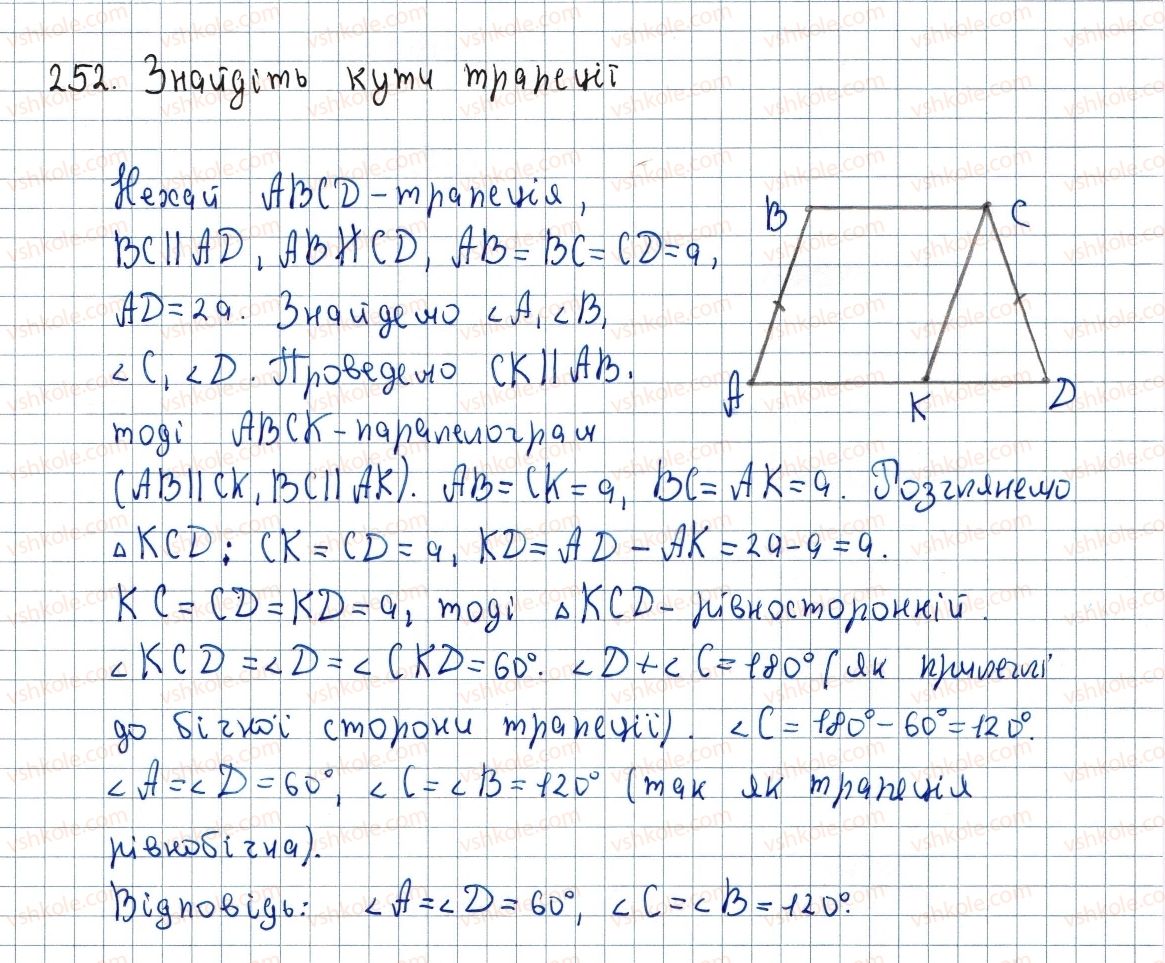 252. Знайдіть кути трапеції
Нехай ABCD - трапеція,
BC || AD, AB ∦ CD, AB = BC = CD = a,
AD = 2a. Знайдемо ∠A, ∠B,
∠C, ∠D. Проведемо CK || AB.
тоді ABCK - паралелограм
(AB || CK, BC || AK). AB = CK = a, BC = AK = a. Розглянемо
△KCD; CK = CD = a, KD = AD - AK = 2a - a = a.
KC = CD = KD = a, тоді △KCD - рівносторонній.
∠KCD = ∠D = ∠CKD = 60°. ∠D + ∠C = 180° (як прилеглі
до бічної сторони трапеції). ∠C = 180° - 60° = 120°.
∠A = ∠D = 60°, ∠C = ∠B = 120° (так як трапеція
рівнобічна).
Відповідь: ∠A = ∠D = 60°, ∠C = ∠B = 120°.
B
C
A
K
D